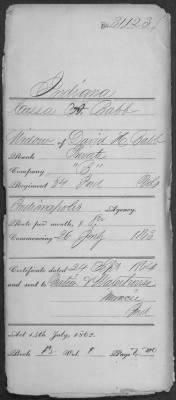 No. 31123
Indiana
Cassa A. Babb
Widow of David H. Babb
Rank Private
Company "B"
Regiment 34 Ind Vols
Indianapolis Agency.
Rate per month, 8
Commencing 26 July 1863
Certificate dated 24 Sept 1864
and sent to
Muncie
Ind
Act 14th July, 1862.
Book Vol. Page